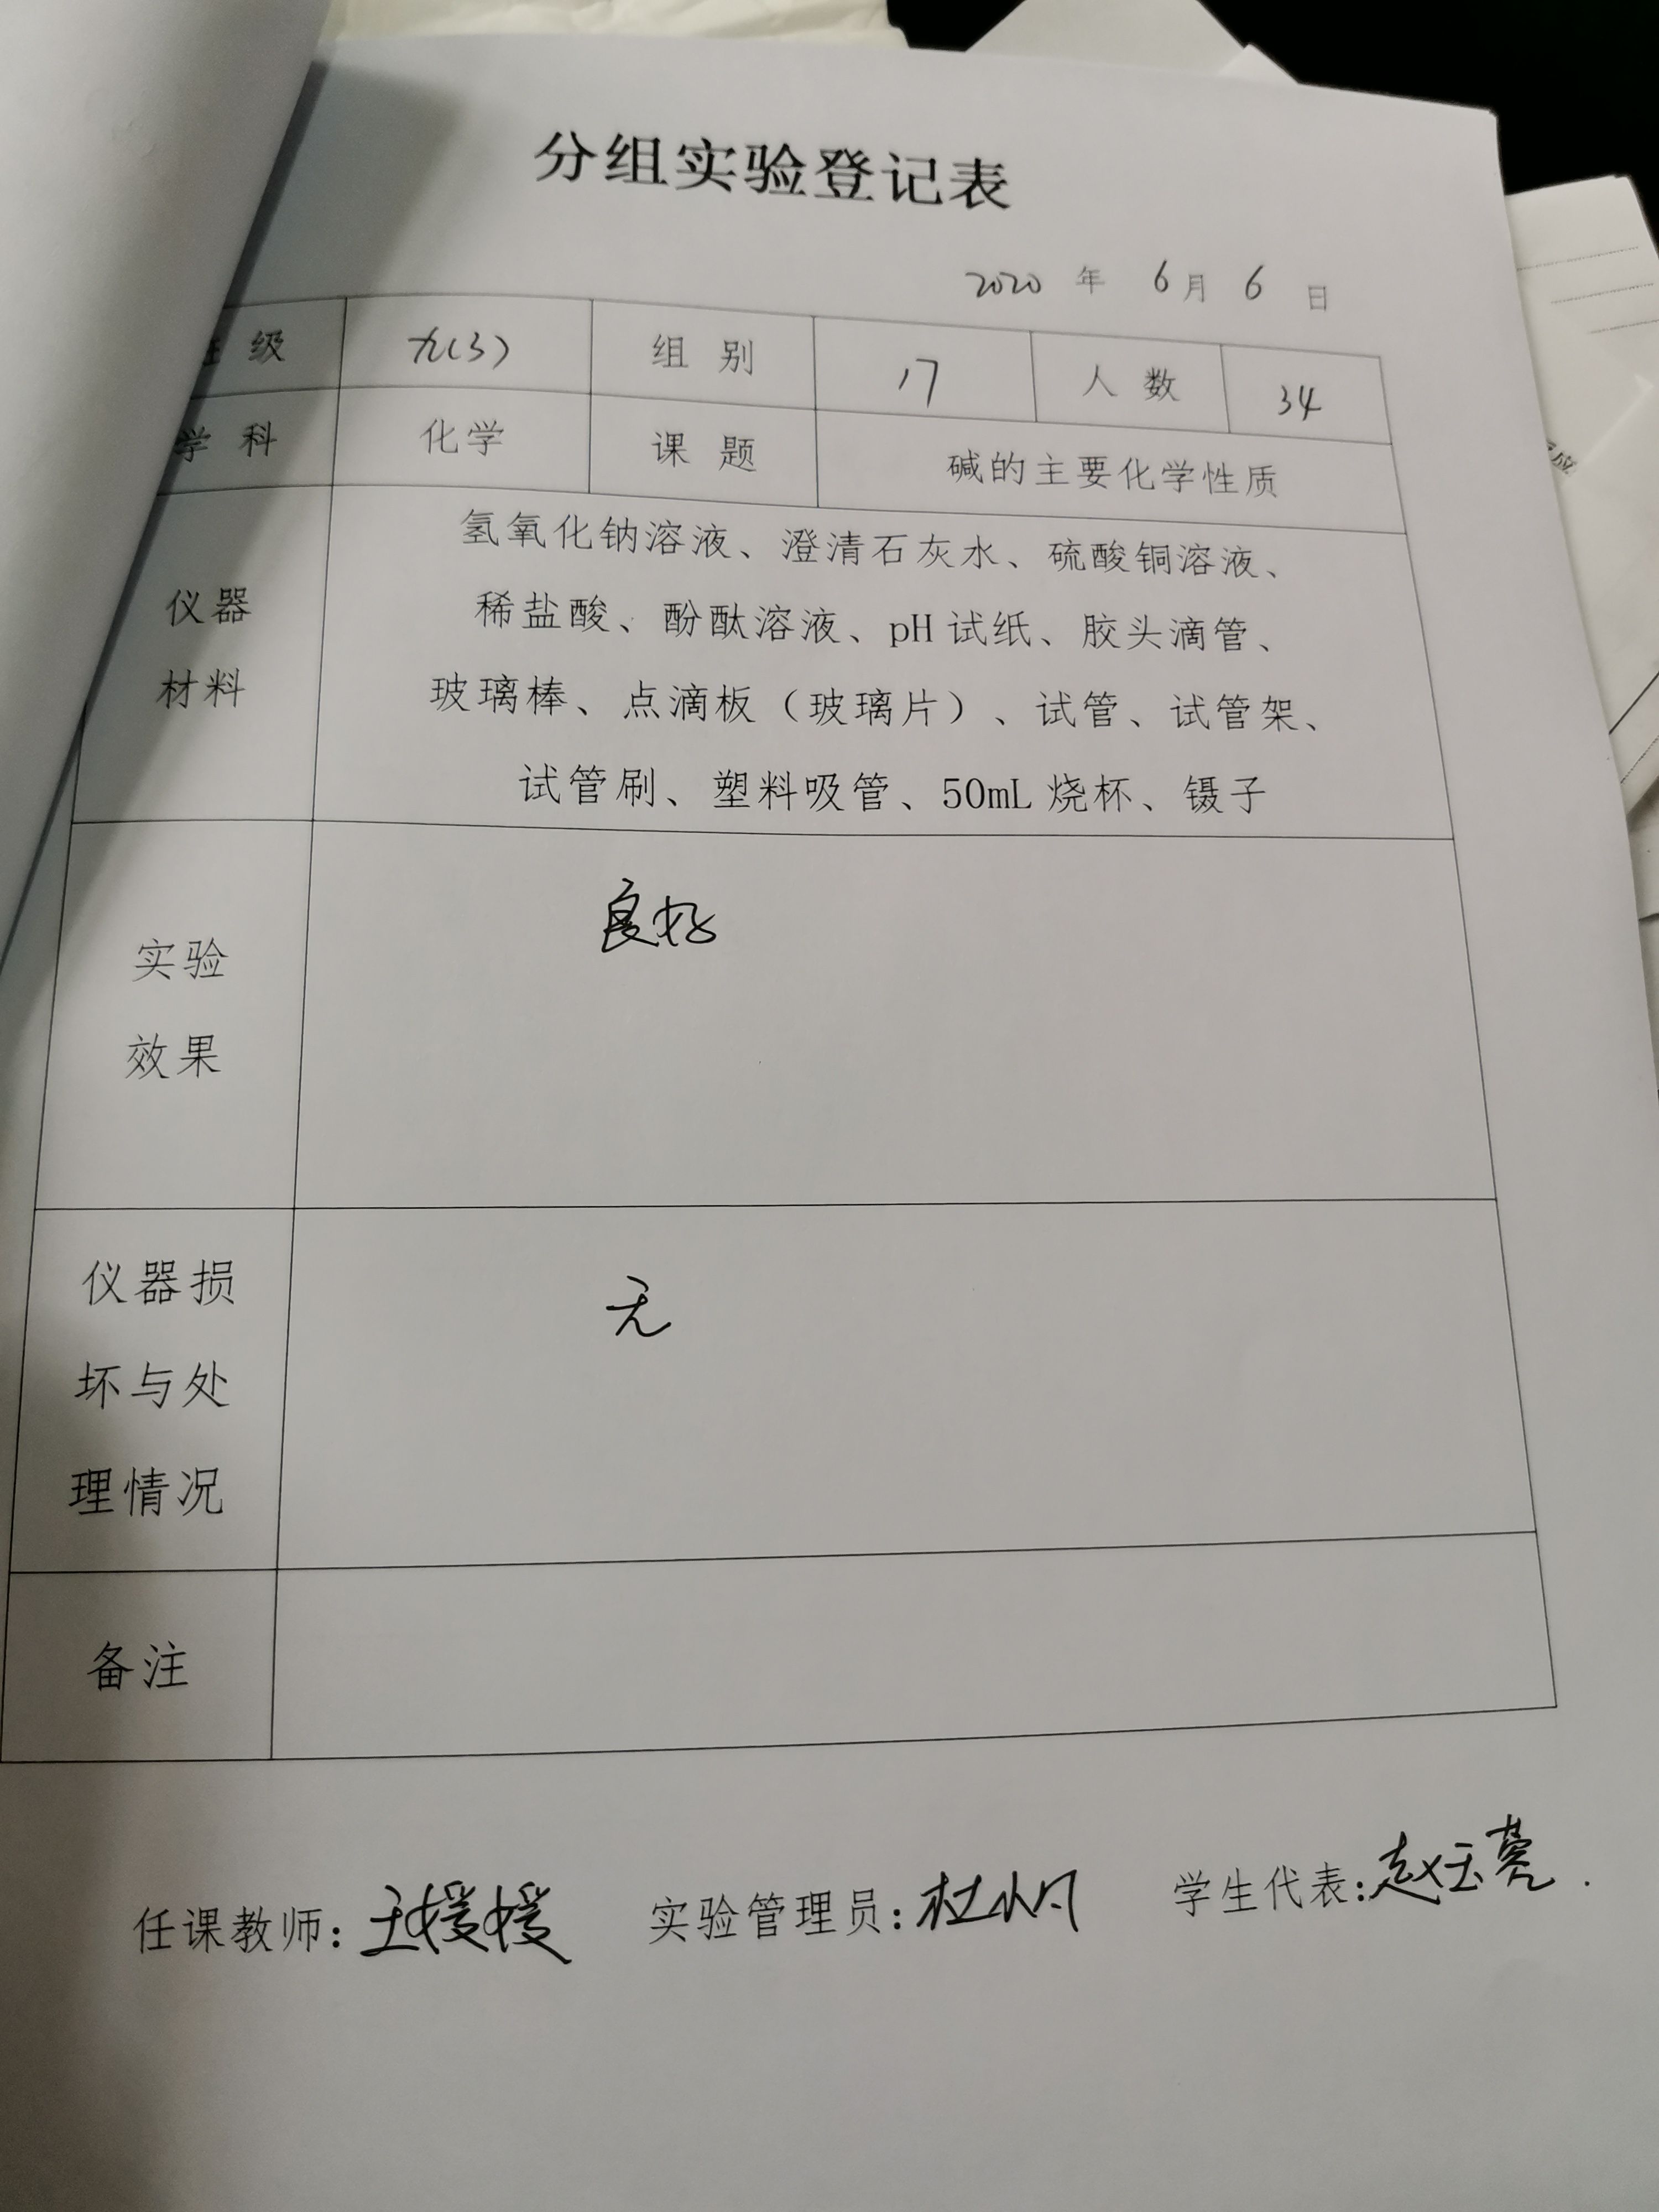 分组实验登记表
2020 年 6 月 6 日
班 级 九(3) 组 别 17 人 数 34
学 科 化学 课 题 碱的主要化学性质
氢氧化钠溶液、澄清石灰水、硫酸铜溶液、
仪器
稀盐酸、酚酞溶液、pH 试纸、胶头滴管、
材料
玻璃棒、点滴板（玻璃片）、试管、试管架、
试管刷、塑料吸管、50mL 烧杯、镊子
实验
效果
良好
仪器损
坏与处
理情况
无
备注
任课教师：王媛媛 实验管理员： 学生代表：赵玉亮